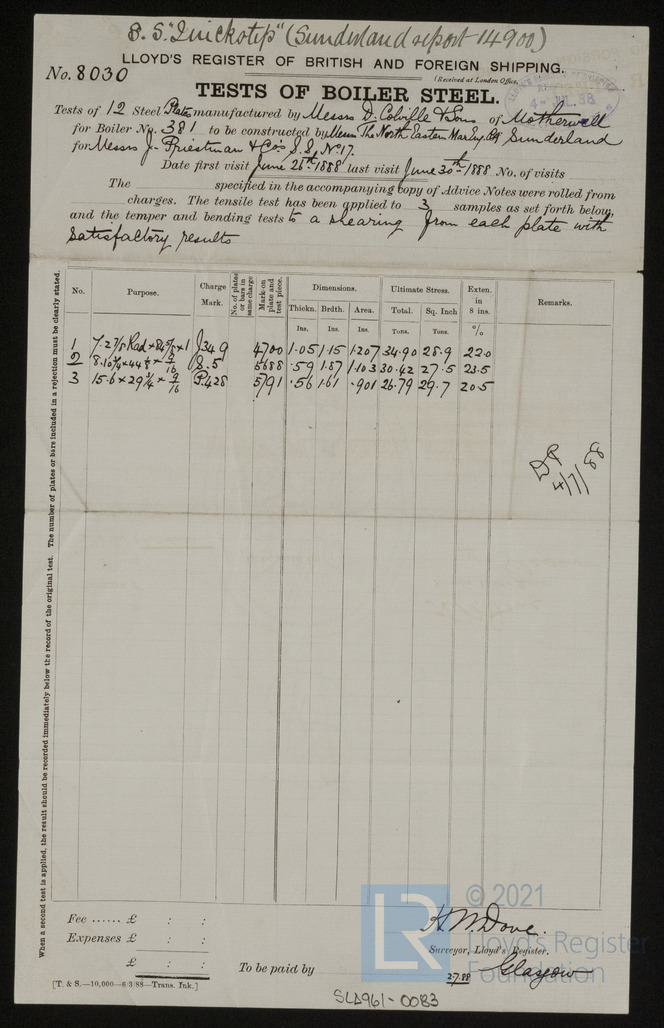 S.S. "Quickstep" (Sunderland report 14900)
LLOYD'S REGISTER OF BRITISH AND FOREIGN SHIPPING.
No. 8030
(Received at London Office,
4-JUL.88
TESTS OF BOILER STEEL.
Tests of 12 Steel Plates manufactured by Messrs D. Colville & Sons of Motherwell
for Boiler No. 381 to be constructed by Messrs The North Eastern Mar Eng Co Sunderland
for Messrs J. Priestman & Co's S.S. No 17.
Date first visit June 26th 1888 last visit June 30th 1888 No. of visits
The specified in the accompanying copy of Advice Notes were rolled from
charges. The tensile test has been applied to 3 samples as set forth below,
and the temper and bending tests to a shearing from each plate with
satisfactory results
No. Purpose. Charge Mark. No. of plates or bars in same charge Mark on plate and test piece. Dimensions. Ultimate Stress. Exten. in 8 ins. Remarks.
Thickn. Brdth. Area. Total. Sq. Inch
Ins. Ins. Ins. Tons. Tons. %
1 7.2 7/8 Rad × 84 5/8 × 1 J349 4700 1.05 1.15 1.207 34.90 28.9 22.0
2 × 44 1/8 × 9/16 S.5 5688 .59 1.87 1.103 30.42 27.5 23.5
3 15.6 × 29 3/4 × 9/16 P.428 5791 .56 1.61 .901 26.79 29.7 20.5
4/7/88
When a second test is applied, the result should be recorded immediately below the record of the original test. The number of plates or bars included in a rejection must be clearly stated.
Fee ...... £ : :
Expenses £ : :
£ : :
To be paid by
H. W. Dove.
Surveyor, Lloyd's Register.
2.7.88 Glasgow
[T. & S.—10,000—6/3/88—Trans. Ink.]
SLD961-0083
LR
© 2021
Lloyd's Register
Foundation